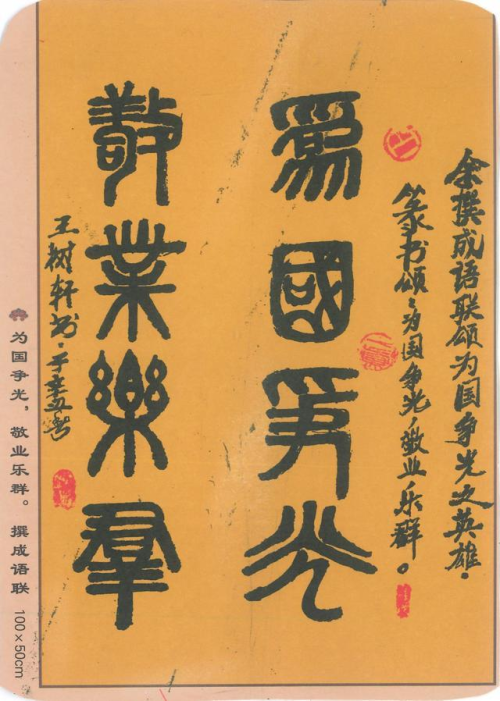 余撰成语联颂为国争光之英雄·
篆书颂:为国争光,敬业乐群。
為國爭光
敬業樂羣
王树轩书·于辛丑
为国争光,敬业乐群。 撰成语联 100×50cm